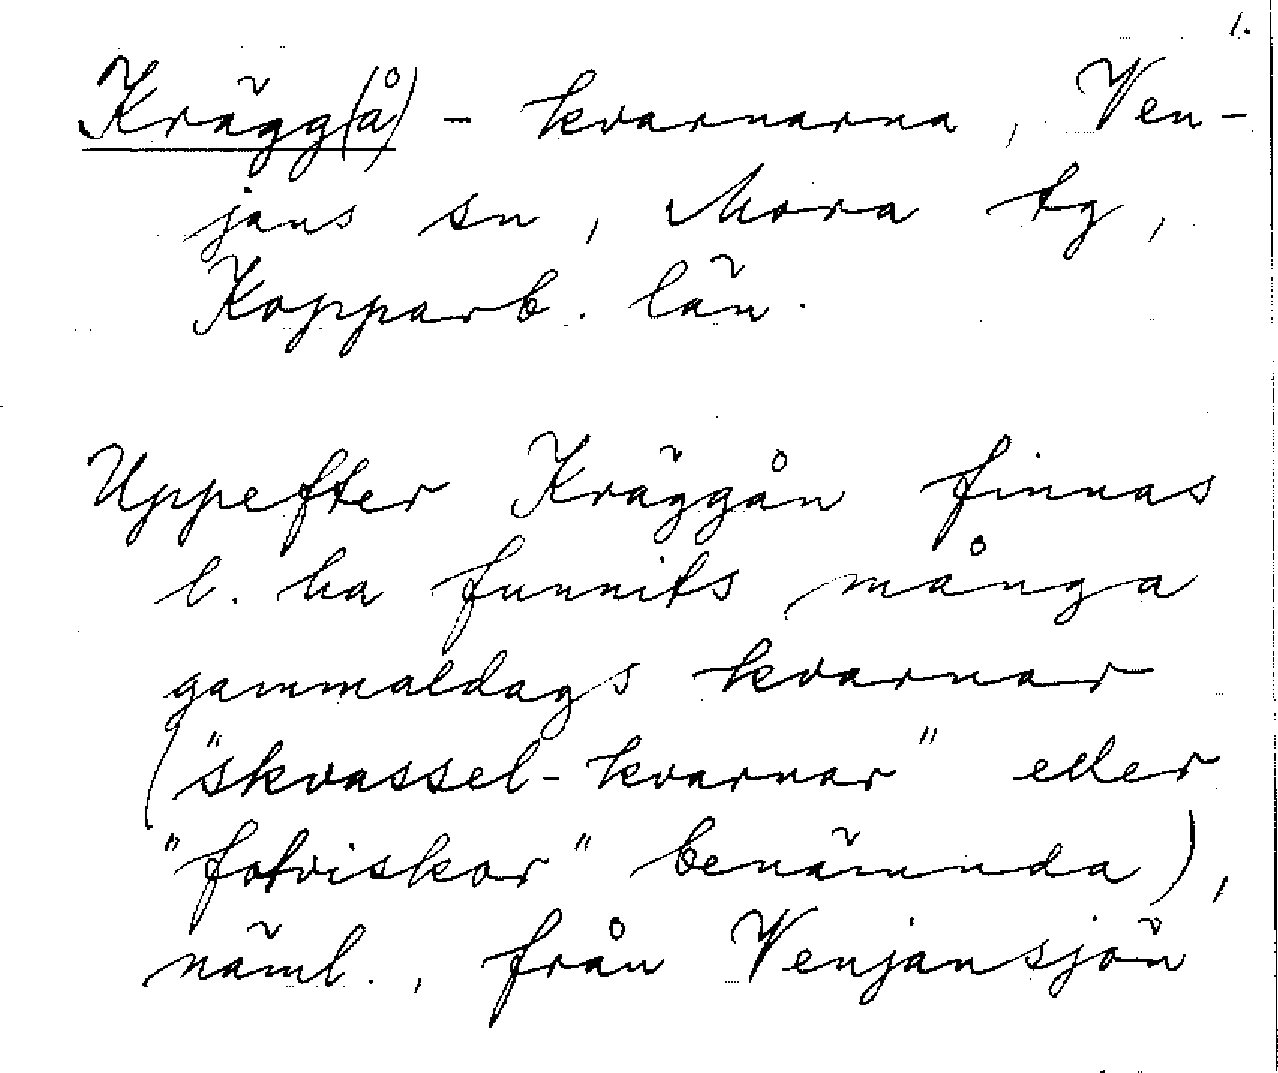 1.
Krägg(å) - kvarnarna, Ven-
jans sn, Mora tg,
Kopparb. län.
Uppefter Kräggån finnas
l. ha funnits många
gammaldags kvarnar
("skvassel-kvarnar" eller
"fotviskor" benämnda),
näml., från Venjansjön